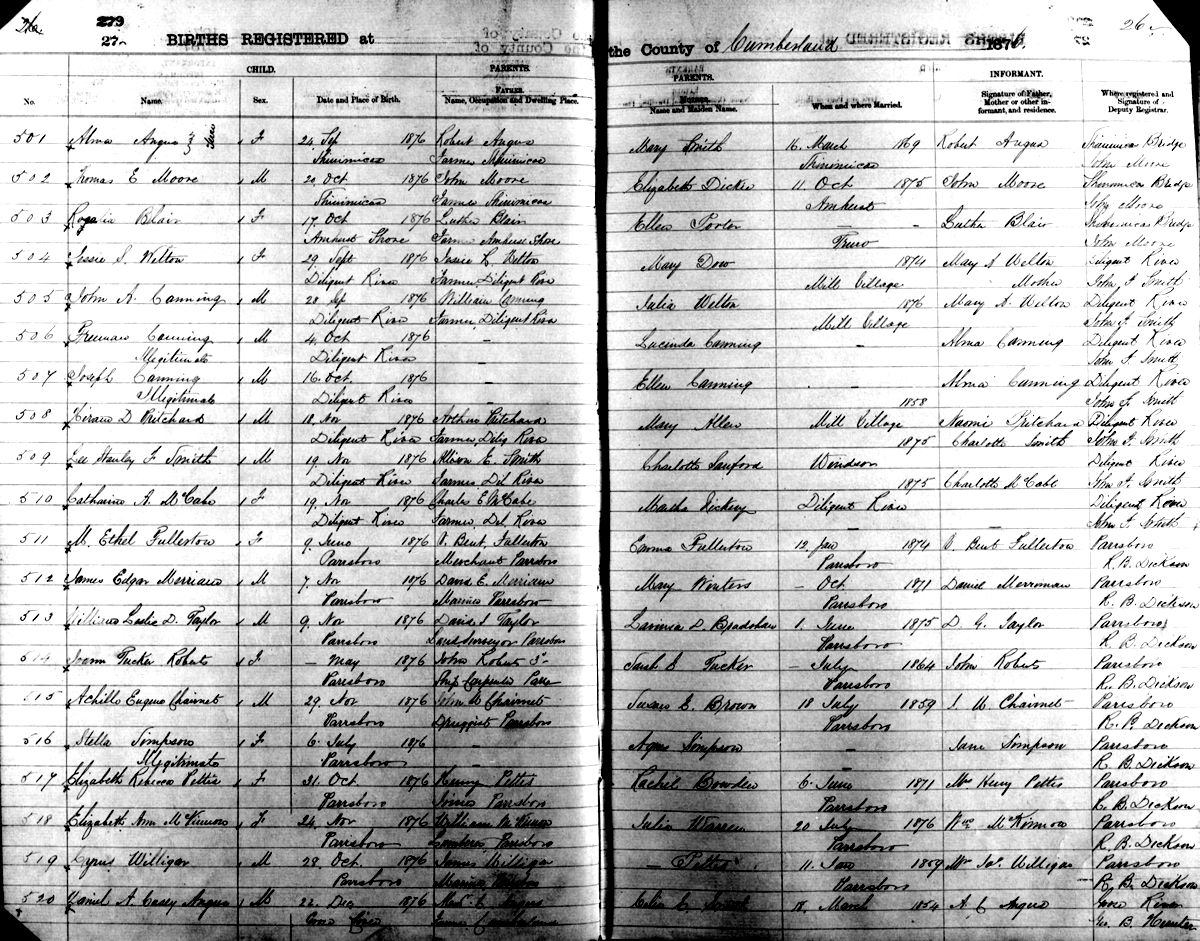 279
27
BIRTHS REGISTERED at
the County of Cumberland 1876.
26
CHILD.
PARENTS.
PARENTS.
INFORMANT.
No.
Name.
Sex.
Date and Place of Birth.
FATHER.
Name, Occupation and Dwelling Place.
MOTHER.
Name and Maiden Name.
When and where Married.
Signature of Father, Mother or other informant, and residence.
Where registered and Signature of Deputy Registrar.
501 Alma Angus F 24 Sep 1876 Robert Angus Mary Smith 16 March 1869 Robert Angus Bridge
Farmer John Moore
502 Thomas E Moore M 20 Oct 1876 John Moore Elizabeth Dickey 11 Oct 1875 John Moore Bridge
Farmer Amherst John Moore
503 Rogalia Blair F 17 Oct 1876 Luther Blair Ellen Porter — - Luther Blair Bridge
Amherst Shore Farmer Amherst Shore Truro John Moore
504 Jessie S. Welton F 29 Sept 1876 Welton Mary Dow 1874 Mary A Welton Diligent River
Diligent River Farmer Diligent River Mill Village Mother John F Smith
505 John A. Canning M 28 Sep 1876 William Canning Julia Welton 1876 Mary A. Welton Diligent River
Diligent River Farmer Diligent River Mill Village John F Smith
506 Freeman Canning M 4 Oct 1876 - Lucinda Canning — Alma Canning Diligent River
Illegitimate Diligent River John F. Smith
507 Joseph Canning M 16 Oct. 1876 - Ellen Canning Alma Canning Diligent River
Illegitimate Diligent River 1858 John F Smith
508 Hiram D Pritchard M 18 Nov 1876 Arthur Pritchard Mary Allen Mill Village Naomi Pritchard Diligent River
Diligent River Farmer Dilig River 1875 Charlotte Smith John F. Smith
509 Lee Stanley F Smith M 19 Nov 1876 Albion E. Smith Charlotte Sanford Windsor Diligent River
Diligent River Farmer Dil River 1875 Charlotte McCabe John F. Smith
510 Catharine A. McCabe F 19 Nov 1876 Charles E McCabe Martha Vickery Diligent River Diligent River
Diligent River Farmer Dil River — — John F Smith
511 M. Ethel Fullerton F 9 June 1876 Bent. Fullerton Emma Fullerton 12 Jan 1874 Bent Fullerton Parrsboro
Parrsboro Merchant Parrsboro Parrsboro R. B. Dickson
512 James Edgar Merriam M 7 Nov 1876 David E. Merriam Mary Winters — Oct. 1871 Daniel Merroman Parrsboro
Parrsboro Mariner Parrsboro Parrsboro R. B. Dickson
513 William Leslie D. Taylor M 9 Nov 1876 Taylor Lavinia D. Bradshaw 1 June 1875 D. G. Taylor Parrsboro
Parrsboro Land Surveyor Parrsboro Parrsboro R B. Dickson
514 Tucker Roberts F — May 1876 John Roberts Sarah Tucker — July 1864 John Roberts Parrsboro
Parrsboro Ship Carpenter Parrs Parrsboro R. B. Dickson
515 Achille Eugene F 29 Nov 1876 John Susan E. Brown 18 July 1859 Parrsboro
Parrsboro Druggist Parrsboro Parrsboro R. B. Dickson
516 Stella Simpson F 6 July 1876 — Agnes Simpson — Jane Simpson Parrsboro
Illegitimate Parrsboro R. B. Dickson
517 Elizabeth Rebecca Pettis F 31 Oct. 1876 Henry Pettis Rachel Bowden 6 June 1871 Mr Henry Pettis Parrsboro
Parrsboro Parrsboro Parrsboro R. B. Dickson
518 Elizabeth Ann McKinnon F 24 Nov 1876 William McKinnon Julia Warren 20 July 1876 Wm McKinnon Parrsboro
Parrsboro Parrsboro Parrsboro R. B. Dickson
519 Cyrus Willigar M 28 Oct. 1876 James Willigar — Pettis 11 Jan 1859 Willigar Parrsboro
Parrsboro Mariner Parrsboro R. B. Dickson
520 Daniel A. Casey Angus M 22 Dec 1876 Angus Celia 18 March 1854 A. C Angus River
Farmer Geo. B. Hunter